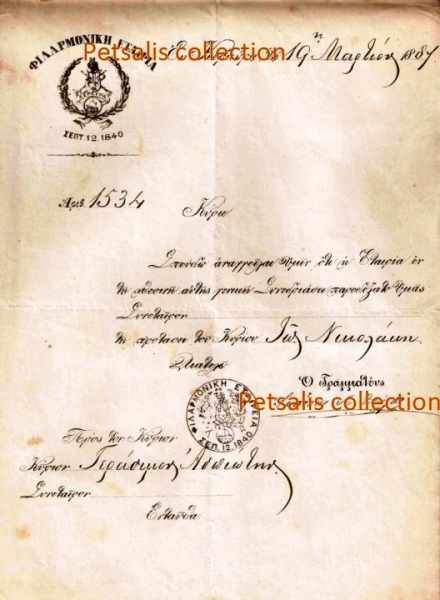 ΦΙΛΑΡΜΟΝΙΚΗ ΕΤΑΙΡΙΑ
ΣΕΠΤ. 12. 1840
Petsalis collection
19 Μαρτίου 1887
Αριθ. 1534
Κύριε
Σπεύδω ἀναγγεῖλαι Ὑμῖν ὅτι ἡ Ἑταιρία ἐν
τῇ χθεσινῇ αὐτῆς γενικῇ Συνεδριάσει παρεδέξατο Ὑμᾶς
Συνεταῖρον
τῇ προτάσει τοῦ Κυρίου Νικολάκη
Ὁ Γραμματεὺς
ΦΙΛΑΡΜΟΝΙΚΗ ΕΤΑΙΡΙΑ
ΣΕΠ. 12. 1840
Petsalis collection
Πρὸς τὸν Κύριον
Κύριον Γεράσιμον
Συνεταῖρον
Ἐνταῦθα